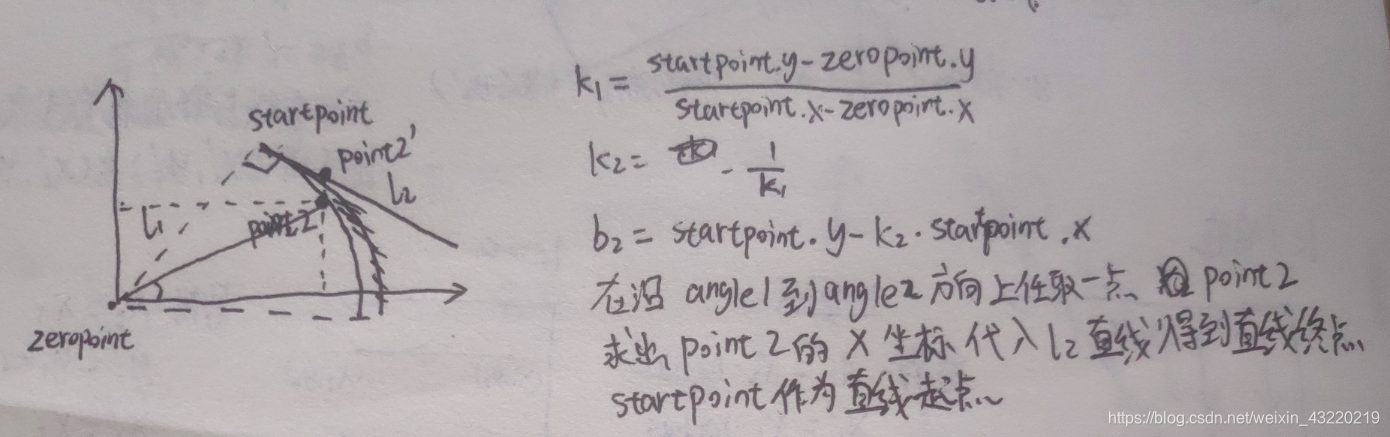 startpoint
point2'
l₂
l₁
point2
zeropoint
k₁ = startpoint.y - zeropoint.y
startpoint.x - zeropoint.x
k₂ = - 1/k₁
b₂ = startpoint.y - k₂ · startpoint.x
在沿 angle1 到 angle2 方向上任取一点 point2
求出 point2 的 X 坐标代入 l₂ 直线得到直线终点
startpoint 作为直线起点
https://blog.csdn.net/weixin_43220219